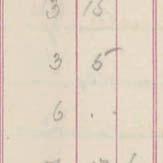 3 15
3 5
6 . .